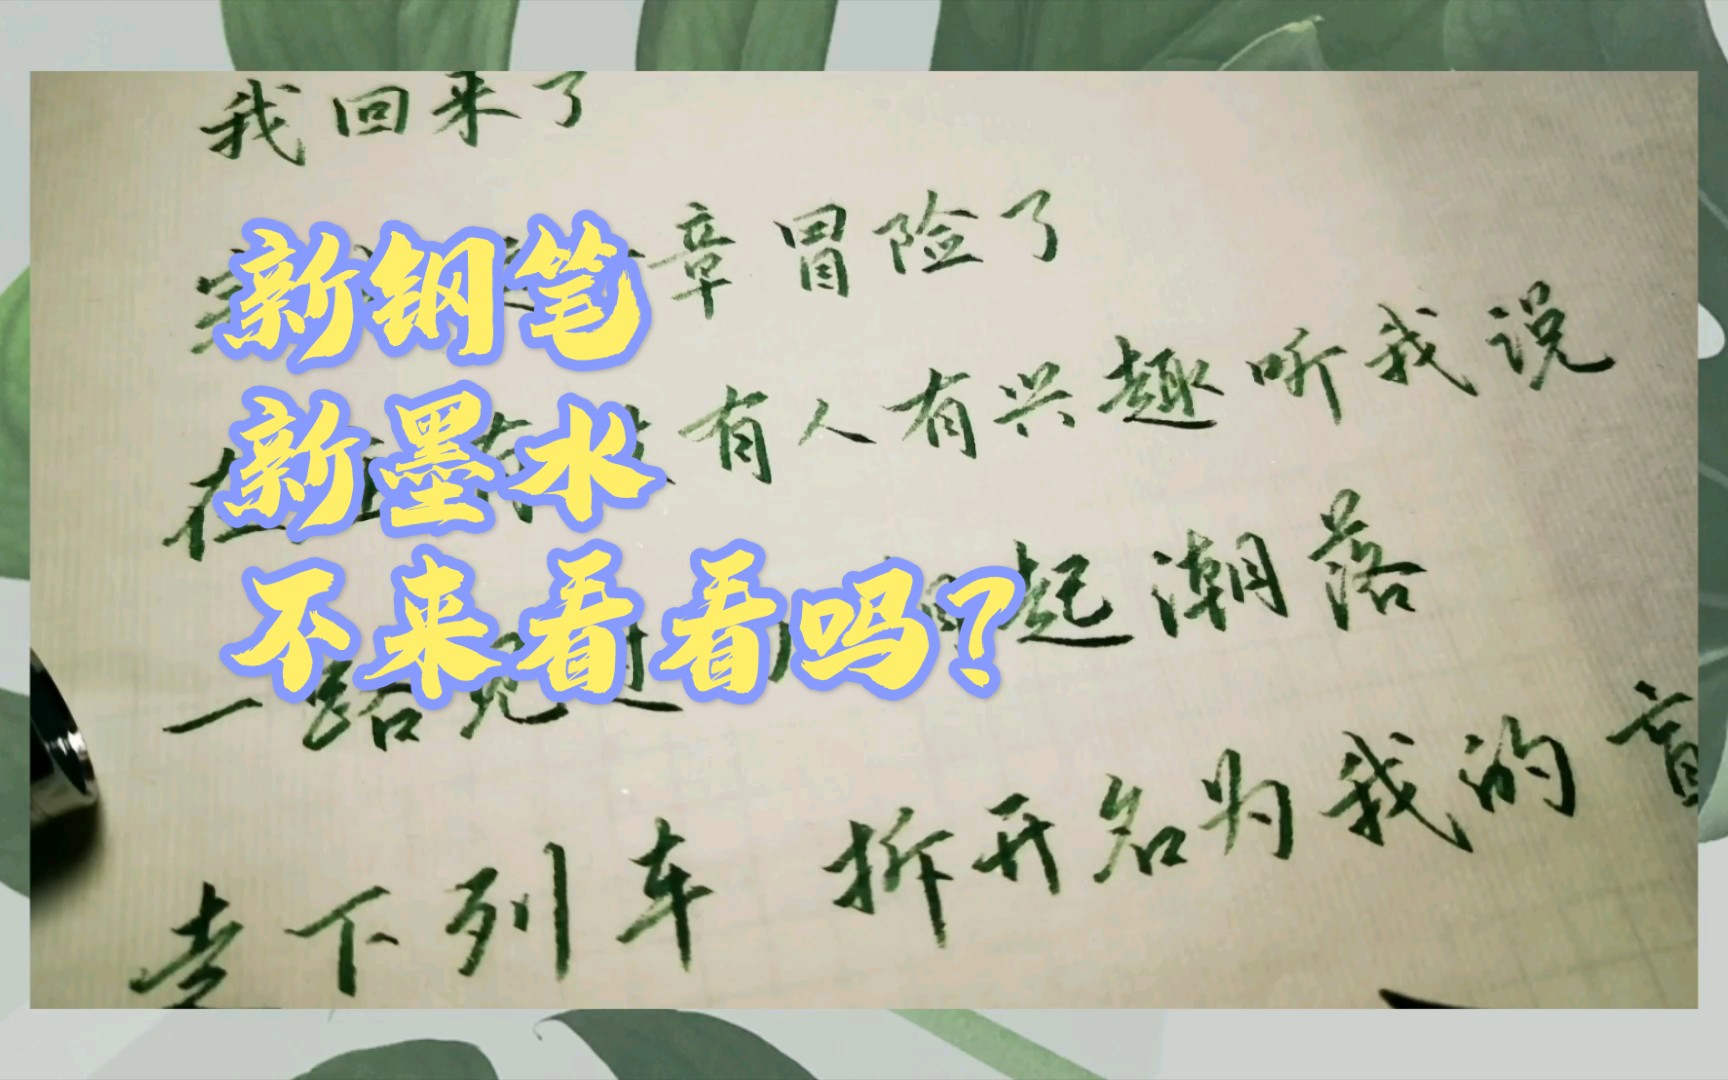 我回来了
章冒险了
有人有兴趣听我说
一路见过 起潮落
走下列车 拆开名为我的盲
新钢笔
新墨水
不来看看吗？